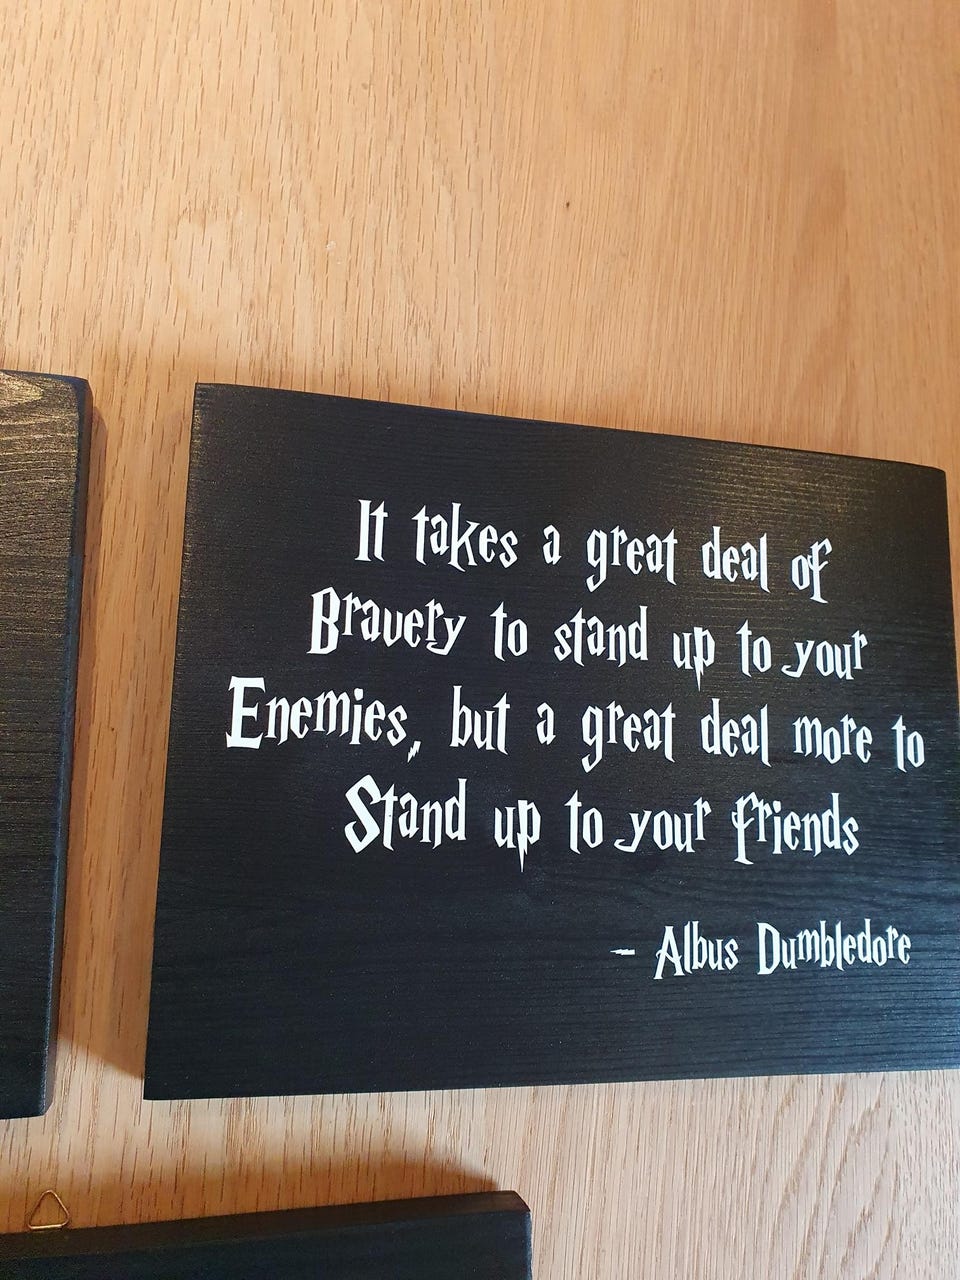 It takes a great deal of
Bravery to stand up to your
Enemies, but a great deal more to
Stand up to your friends
- Albus Dumbledore